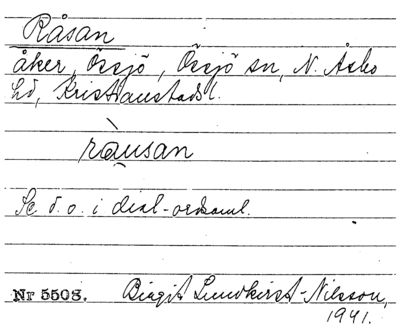 Råsan
åker, Össjö, Össjö sn, N. Åsbo
hd, Kristianstads l.
ràu̱san
Se d. o. i dial-ordsaml.
Nr 5508. Birgit Lundkvist-Nilsson,
1941.